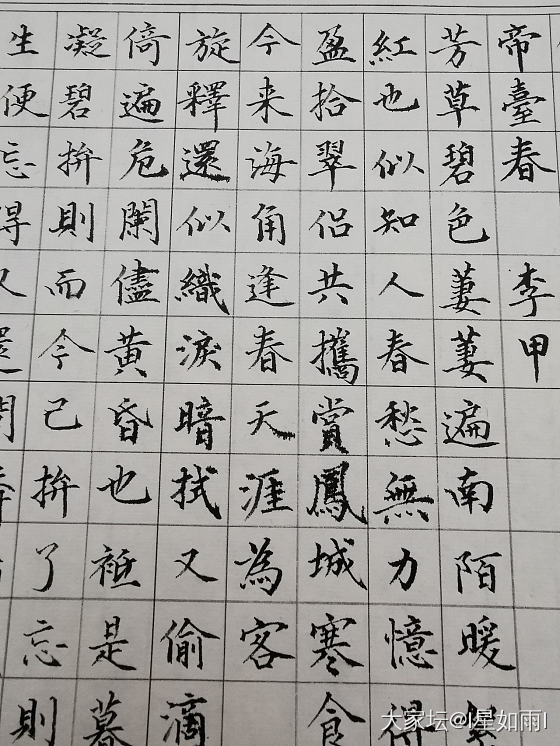 帝臺春 李甲
芳草碧色萋萋遍南陌暖
紅也似知人春愁無力憶得
盈拾翠侣共攜賞鳳城寒食
今来海角逢春天涯為客
旋釋還似織淚暗拭又偷滴
倚遍危闌儘黄昏也祗是暮
凝碧拚則而今已拚了忘則
生便忘得又還
大家坛@|星如雨|